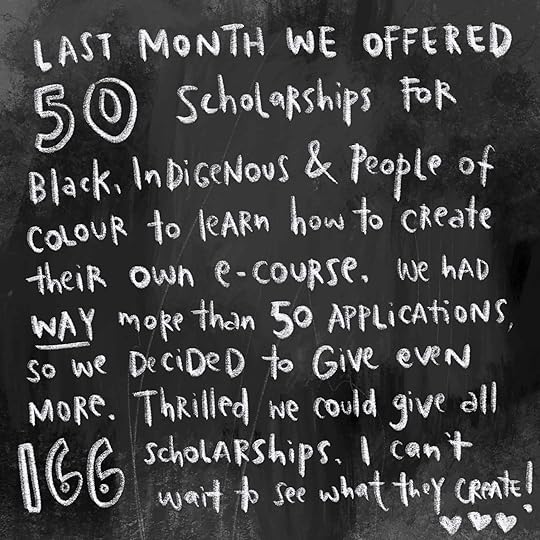 LAST MONTH WE OFFERED
50 Scholarships FOR
Black, InDiGeNous & People of
COLOUR to leARn how to CReate
theiR own e-couRse. We HAD
WAY more than 50 APPLicATions,
so we DeciDeD to Give even
MoRe. Thrilled we could give all
166 scholARships. I can't
wait to see what they CREATE!